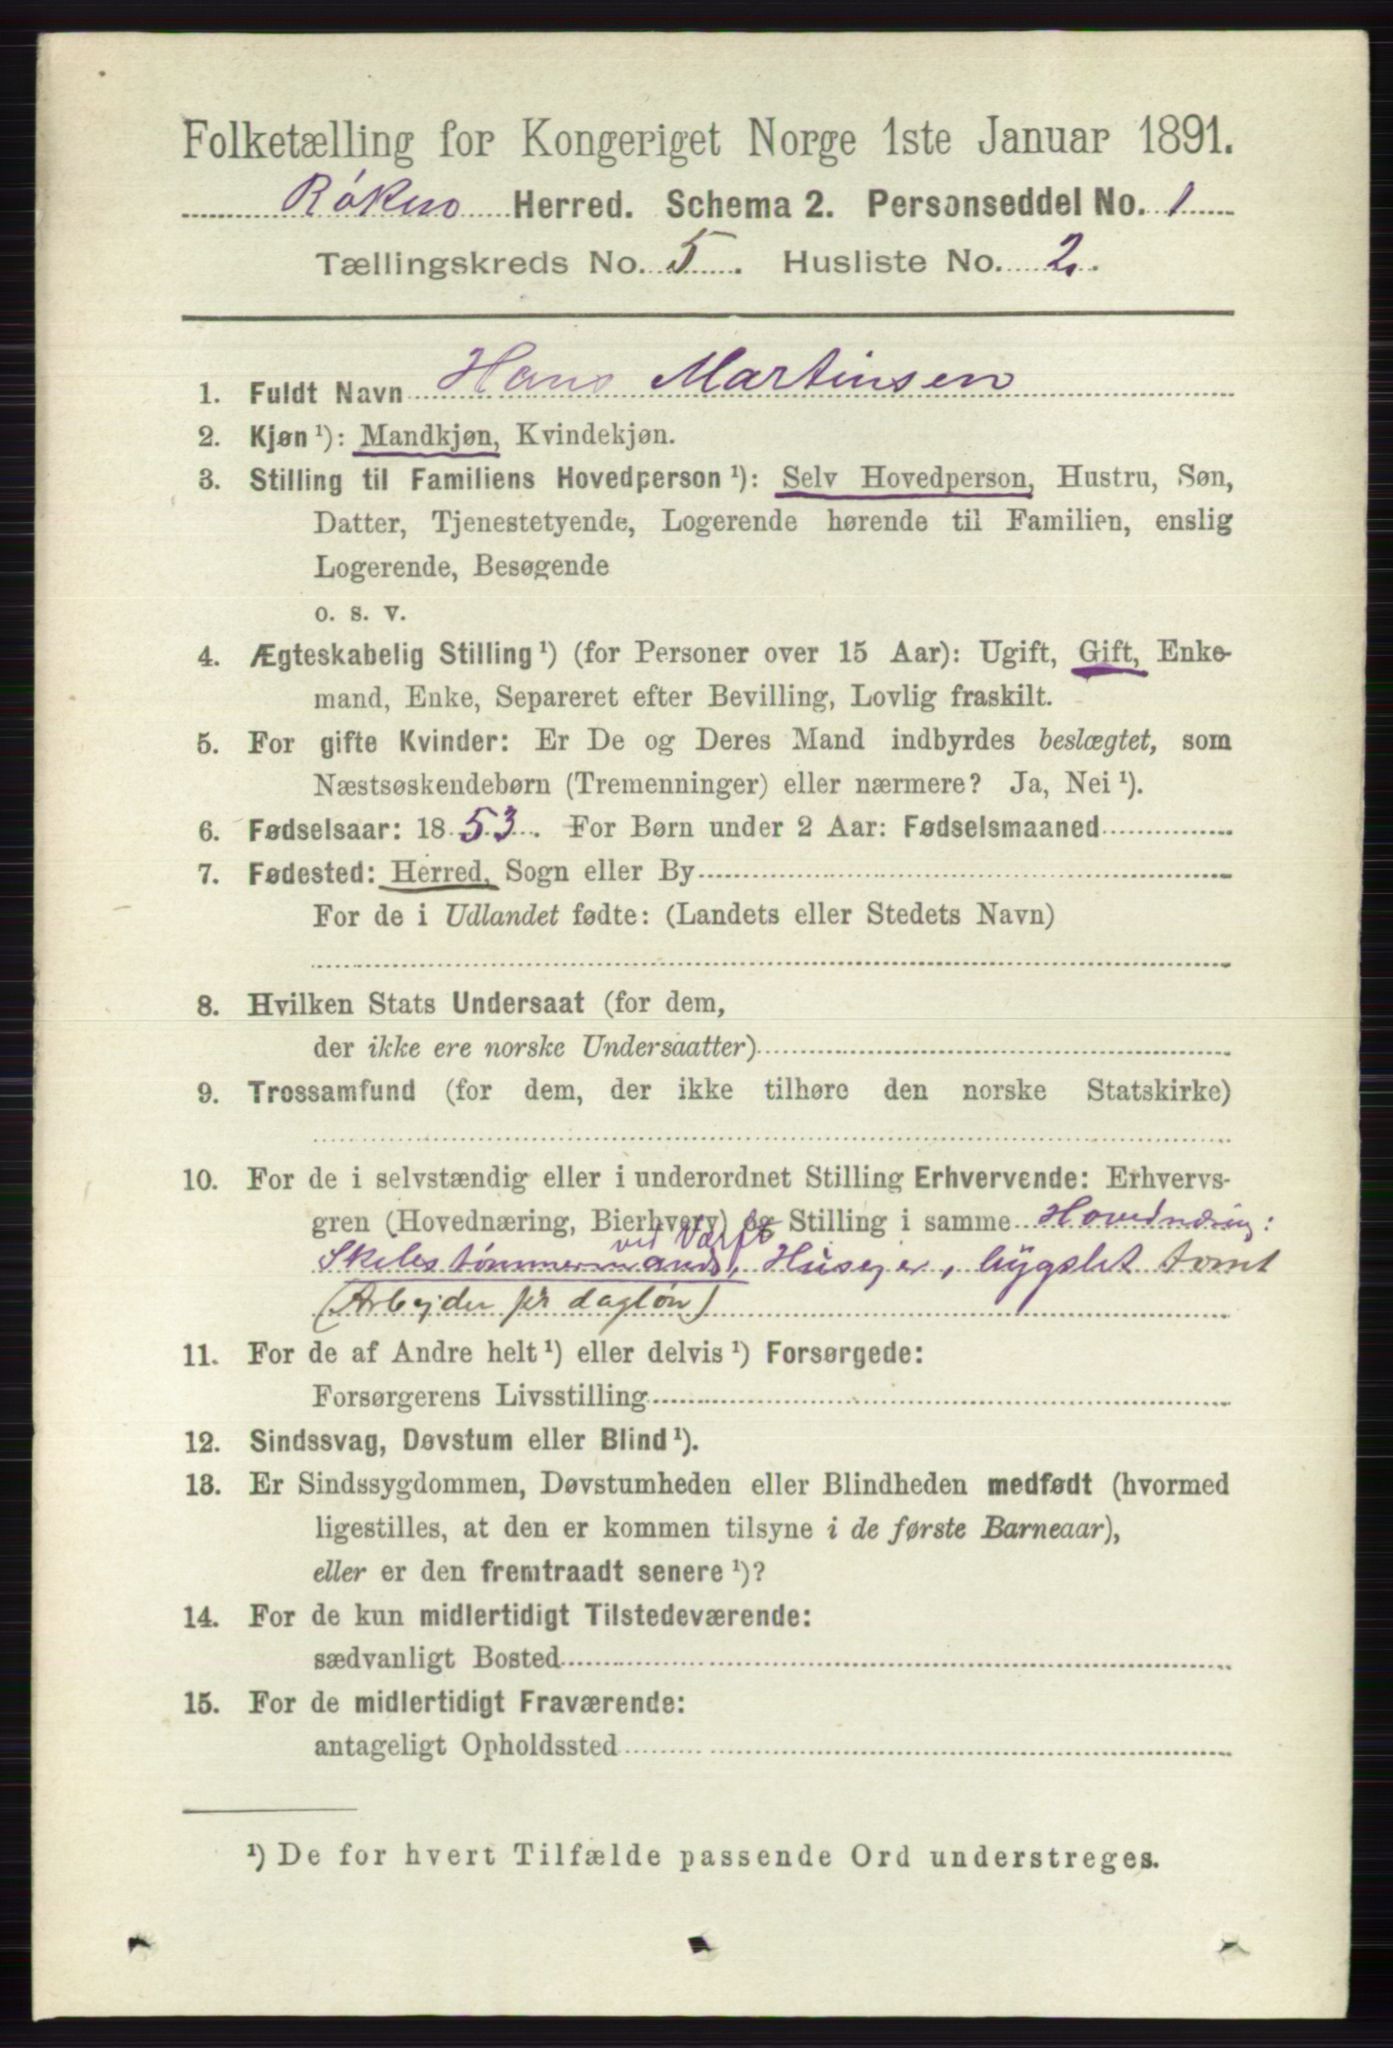 Folketælling for Kongeriget Norge 1ste Januar 1891.
Røken Herred. Schema 2. Personseddel No. 1
Tællingskreds No. 5. Husliste No. 2.
1. Fuldt Navn Hans Martinsen
2. Kjøn ¹): Mandkjøn, Kvindekjøn.
3. Stilling til Familiens Hovedperson ¹): Selv Hovedperson, Hustru, Søn,
Datter, Tjenestetyende, Logerende hørende til Familien, enslig
Logerende, Besøgende
o. s. v.
4. Ægteskabelig Stilling ¹) (for Personer over 15 Aar): Ugift, Gift, Enke-
mand, Enke, Separeret efter Bevilling, Lovlig fraskilt.
5. For gifte Kvinder: Er De og Deres Mand indbyrdes beslægtet, som
Næstsøskendebørn (Tremenninger) eller nærmere? Ja, Nei ¹).
6. Fødselsaar: 1853. For Børn under 2 Aar: Fødselsmaaned
7. Fødested: Herred, Sogn eller By
For de i Udlandet fødte: (Landets eller Stedets Navn)
8. Hvilken Stats Undersaat (for dem,
der ikke ere norske Undersaatter)
9. Trossamfund (for dem, der ikke tilhøre den norske Statskirke)
10. For de i selvstændig eller i underordnet Stilling Erhvervende: Erhvervs-
gren (Hovednæring, Bierhverv) og Stilling i samme Hovednæring:
ved Værft
Skibstømmermand, Husejer, bygslet tomt
(Arbejder for dagløn)
11. For de af Andre helt ¹) eller delvis ¹) Forsørgede:
Forsørgerens Livsstilling
12. Sindssvag, Døvstum eller Blind ¹).
13. Er Sindssygdommen, Døvstumheden eller Blindheden medfødt (hvormed
ligestilles, at den er kommen tilsyne i de første Barneaar),
eller er den fremtraadt senere ¹)?
14. For de kun midlertidigt Tilstedeværende:
sædvanligt Bosted
15. For de midlertidigt Fraværende:
antageligt Opholdssted
¹) De for hvert Tilfælde passende Ord understreges.